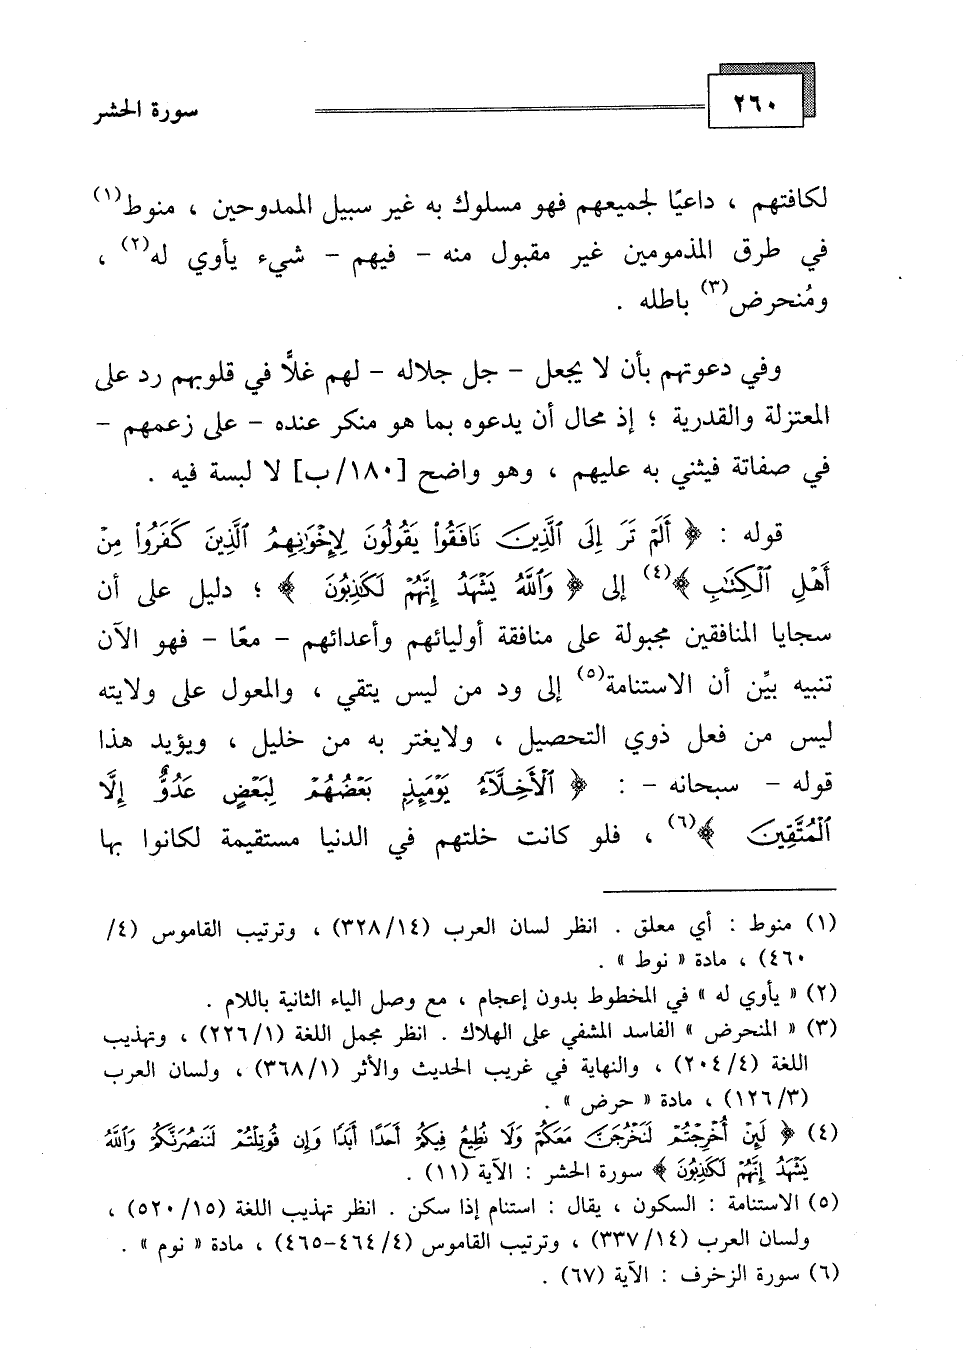 ٢٦٠
سورة الحشر
لكافتهم ، داعيًا لجميعهم فهو مسلوك به غير سبيل الممدوحين ، منوط(١)
في طرق المذمومين غير مقبول منه - فيهم - شيء يأوي له(٢) ،
ومُنحرض(٣) باطله .
وفي دعوتهم بأن لا يجعل - جل جلاله - لهم غلاًّ في قلوبهم رد على
المعتزلة والقدرية ؛ إذ محال أن يدعوه بما هو منكر عنده - على زعمهم -
في صفاتة فيثني به عليهم ، وهو واضح [١٨٠/ب] لا لبسة فيه .
قوله : ﴿ أَلَمْ تَرَ إِلَى ٱلَّذِينَ نَافَقُواْ يَقُولُونَ لِإِخْوَٰنِهِمُ ٱلَّذِينَ كَفَرُواْ مِنْ
أَهْلِ ٱلْكِتَٰبِ ﴾(٤) إلى ﴿ وَٱللَّهُ يَشْهَدُ إِنَّهُمْ لَكَٰذِبُونَ ﴾ ؛ دليل على أن
سجايا المنافقين مجبولة على منافقة أوليائهم وأعدائهم - معًا - فهو الآن
تنبيه بيِّن أن الاستنامة(٥) إلى ود من ليس يتقي ، والمعول على ولايته
ليس من فعل ذوي التحصيل ، ولايغتر به من خليل ، ويؤيد هذا
قوله - سبحانه - : ﴿ ٱلْأَخِلَّآءُ يَوْمَئِذٍۭ بَعْضُهُمْ لِبَعْضٍ عَدُوٌّ إِلَّا
ٱلْمُتَّقِينَ ﴾(٦) ، فلو كانت خلتهم في الدنيا مستقيمة لكانوا بها
(١) منوط : أي معلق . انظر لسان العرب (٣٢٨/١٤) ، وترتيب القاموس (٤/
٤٦٠) ، مادة « نوط » .
(٢) « يأوي له » في المخطوط بدون إعجام ، مع وصل الياء الثانية باللام .
(٣) « المنحرض » الفاسد المشفي على الهلاك . انظر مجمل اللغة (٢٢٦/١) ، وتهذيب
اللغة (٢٠٤/٤) ، والنهاية في غريب الحديث والأثر (٣٦٨/١) ، ولسان العرب
(١٢٦/٣) ، مادة « حرض » .
(٤) ﴿ لَئِنْ أُخْرِجْتُمْ لَنَخْرُجَنَّ مَعَكُمْ وَلَا نُطِيعُ فِيكُمْ أَحَدًا أَبَدًا وَإِن قُوتِلْتُمْ لَنَنصُرَنَّكُمْ وَٱللَّهُ
يَشْهَدُ إِنَّهُمْ لَكَٰذِبُونَ ﴾ سورة الحشر : الآية (١١) .
(٥) الاستنامة : السكون ، يقال : استنام إذا سكن . انظر تهذيب اللغة (٥٢٠/١٥) ،
ولسان العرب (٣٣٧/١٤) ، وترتيب القاموس (٤٦٤/٤-٤٦٥) ، مادة « نوم » .
(٦) سورة الزخرف : الآية (٦٧) .